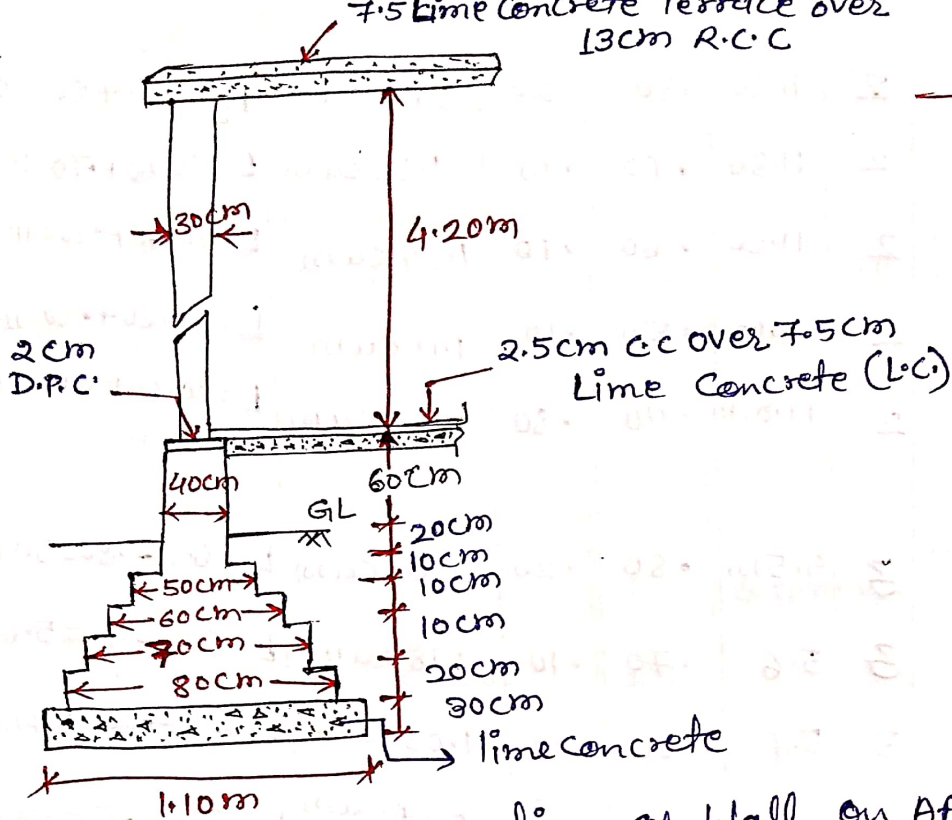 7.5 Lime Concrete Terrace over
13cm R.C.C
30cm
4.20m
2cm
D.P.C.
2.5cm c.c over 7.5cm
Lime Concrete (L.C.)
40cm
60cm
GL
20cm
10cm
50cm
10cm
60cm
10cm
70cm
20cm
80cm
30cm
lime concrete
1.10m
Wall on